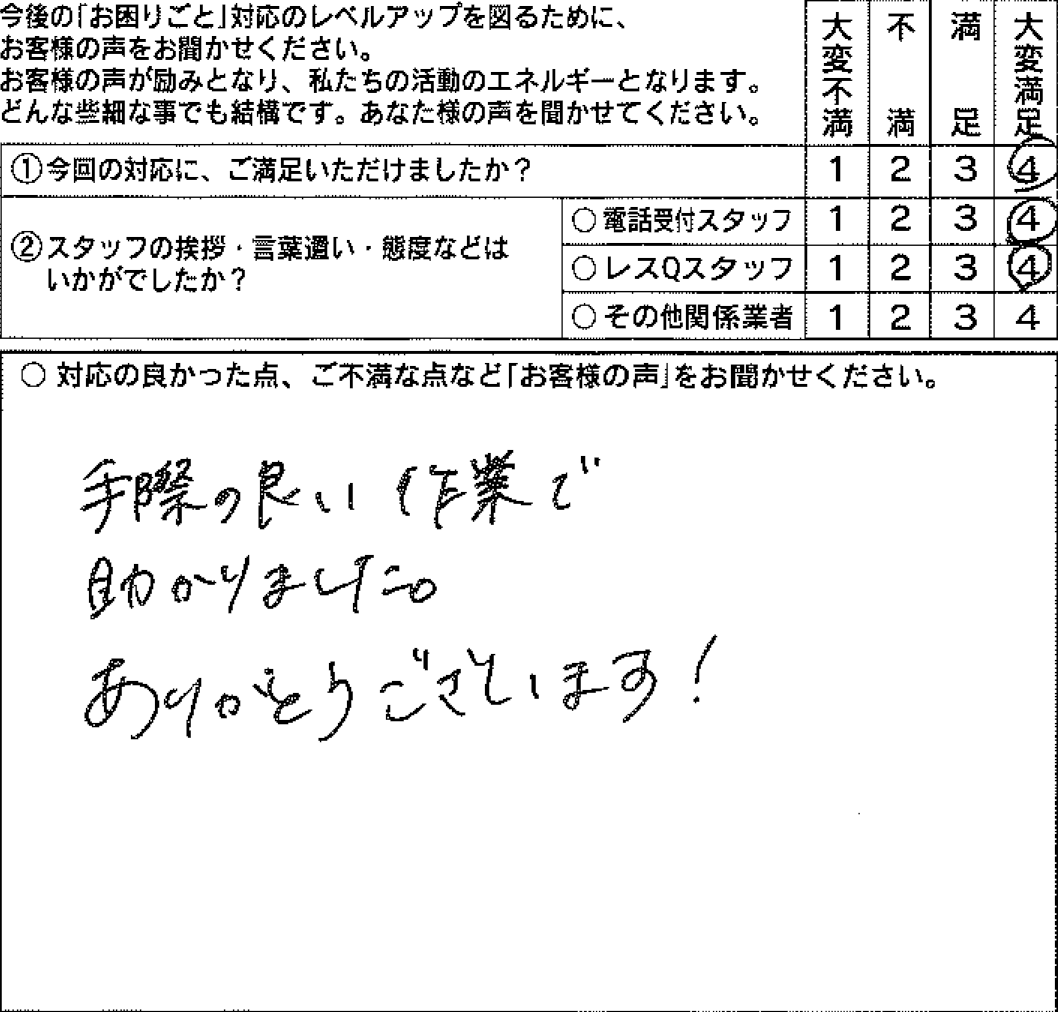 今後の「お困りごと」対応のレベルアップを図るために、
お客様の声をお聞かせください。
お客様の声が励みとなり、私たちの活動のエネルギーとなります。
どんな些細な事でも結構です。あなた様の声を聞かせてください。
大変不満 不満 満足 大変満足
①今回の対応に、ご満足いただけましたか？ 1 2 3 4
②スタッフの挨拶・言葉遣い・態度などは
いかがでしたか？
○電話受付スタッフ 1 2 3 4
○レスQスタッフ 1 2 3 4
○その他関係業者 1 2 3 4
○対応の良かった点、ご不満な点など「お客様の声」をお聞かせください。
手際の良い作業で
助かりました。
ありがとうございます！